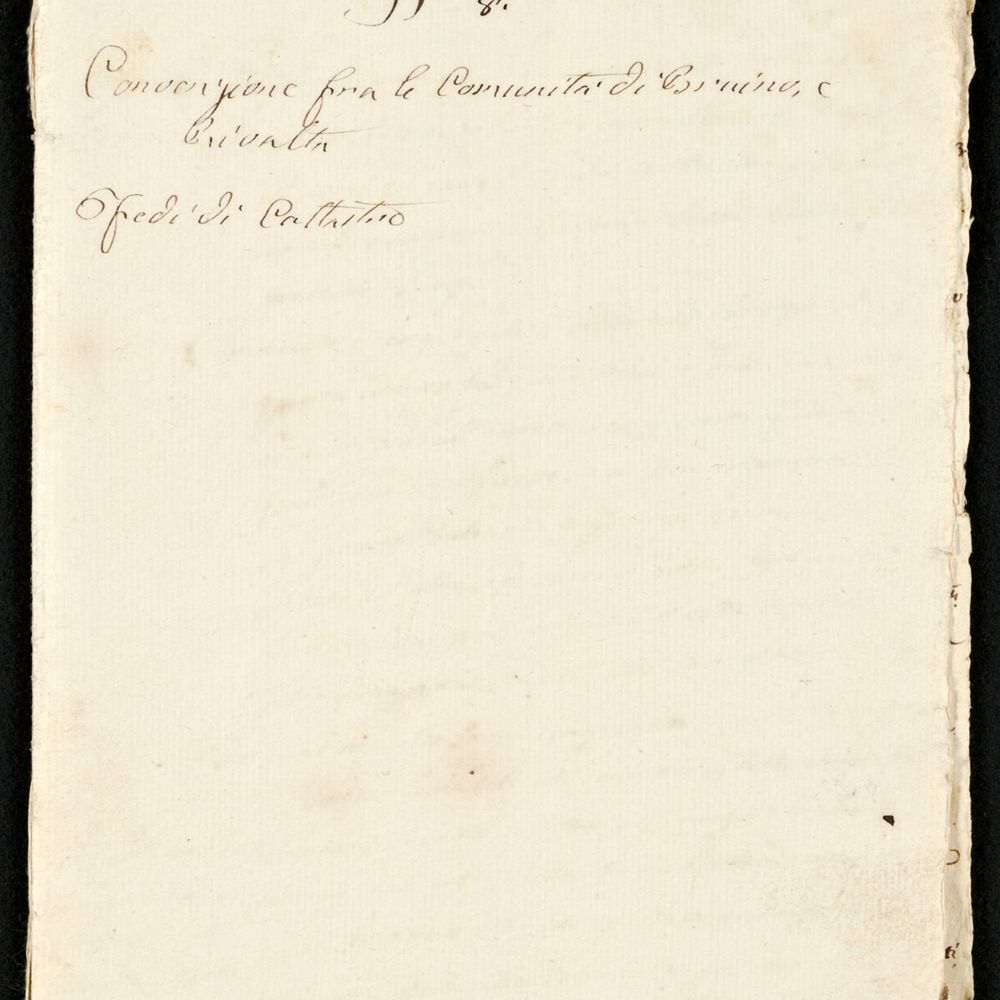 8.
Convenzione fra le Comunità di Bruino, e
Rivalta
Fedi di Cattastro